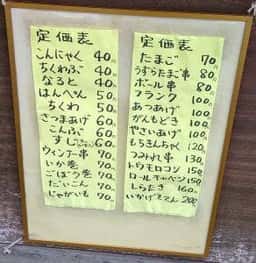 定価表
こんにゃく 40
ちくわぶ 40
なると 40
はんぺん 50
ちくわ 50
さつまあげ 60
こんぶ 60
すじ 60
ウィンナー串 70
いか巻 70
ごぼう巻 70
だいこん 70
じゃがいも 70
定価表
たまご 70
うずらたまご串 80
ボール串 80
フランク 100
あつあげ 100
がんもどき 100
やさいあげ 100
もちきんちゃく 120
つみれ串 130
トウモロコシ 150
ロールキャベツ 150
しらたき 160
いかげそてん 200